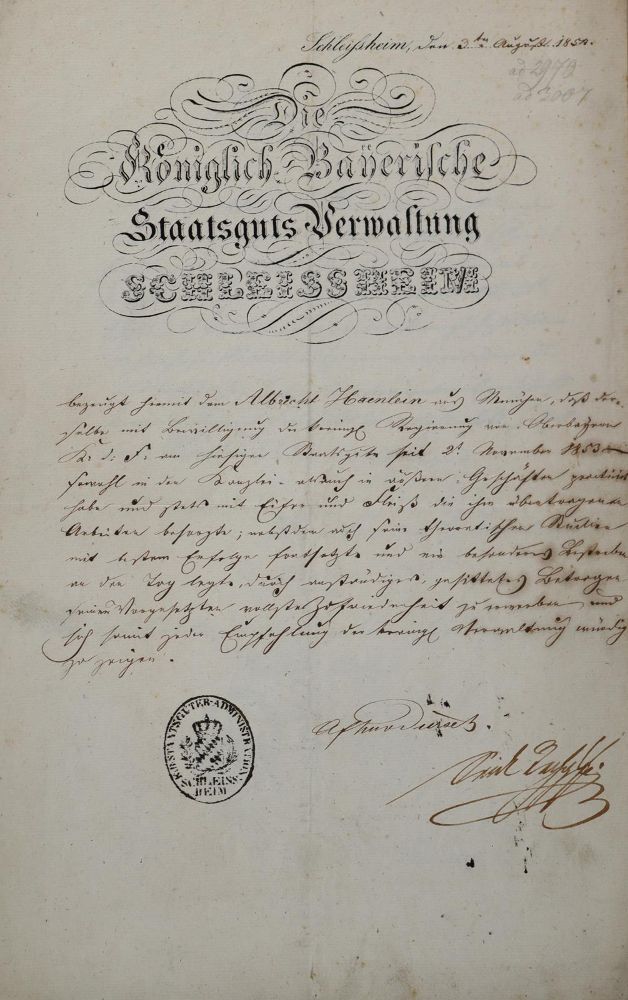 Schleißheim, den 3ten August 1854.
ad 2979
ad 2007
Die
Königlich Bayerische
Staatsguts Verwaltung
SCHLEISSHEIM
bezeugt hiemit dem Albrecht Haenlein aus München, daß der-
selbe mit Bewilligung der königl. Regierung von Oberbayern
K. d. F. am hiesigen Staatsgute seit 2t. November 1853
sowohl in der Kanzlei- als auch in äußern Geschäften practicirt
habe und stets mit Eifer und Fleiß die ihm übertragenen
Arbeiten besorgte; nebstdem auch seine theoretischen Studien
mit bestem Erfolge fortsetzte und ein besonderes Bestreben
an den Tag legte, durch anständiges, gesittetes Betragen
seiner Vorgesetzten vollste Zufriedenheit zu erwerben und
sich somit jeder Empfehlung der königl. Verwaltung würdig
zu zeigen.
KGL. STAATSGÜTER-ADMINISTRATION
SCHLEISS-
HEIM